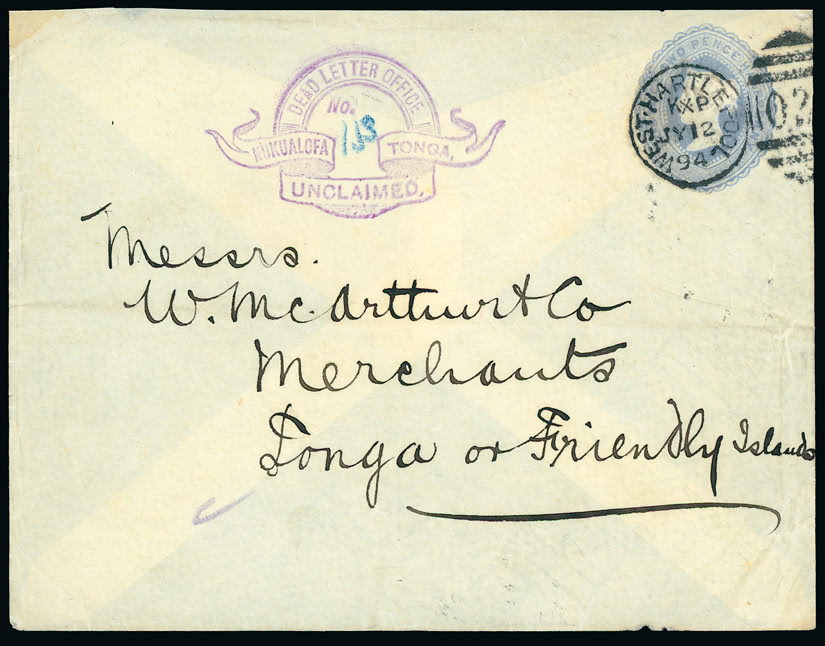 DEAD LETTER OFFICE
No.
NUKUALOFA TONGA,
UNCLAIMED.
TWO PENCE
WEST HARTLEPOOL
JY 12
94
Messrs.
W. Mc. Arthur & Co
Merchants
Tonga or Friendly Islands